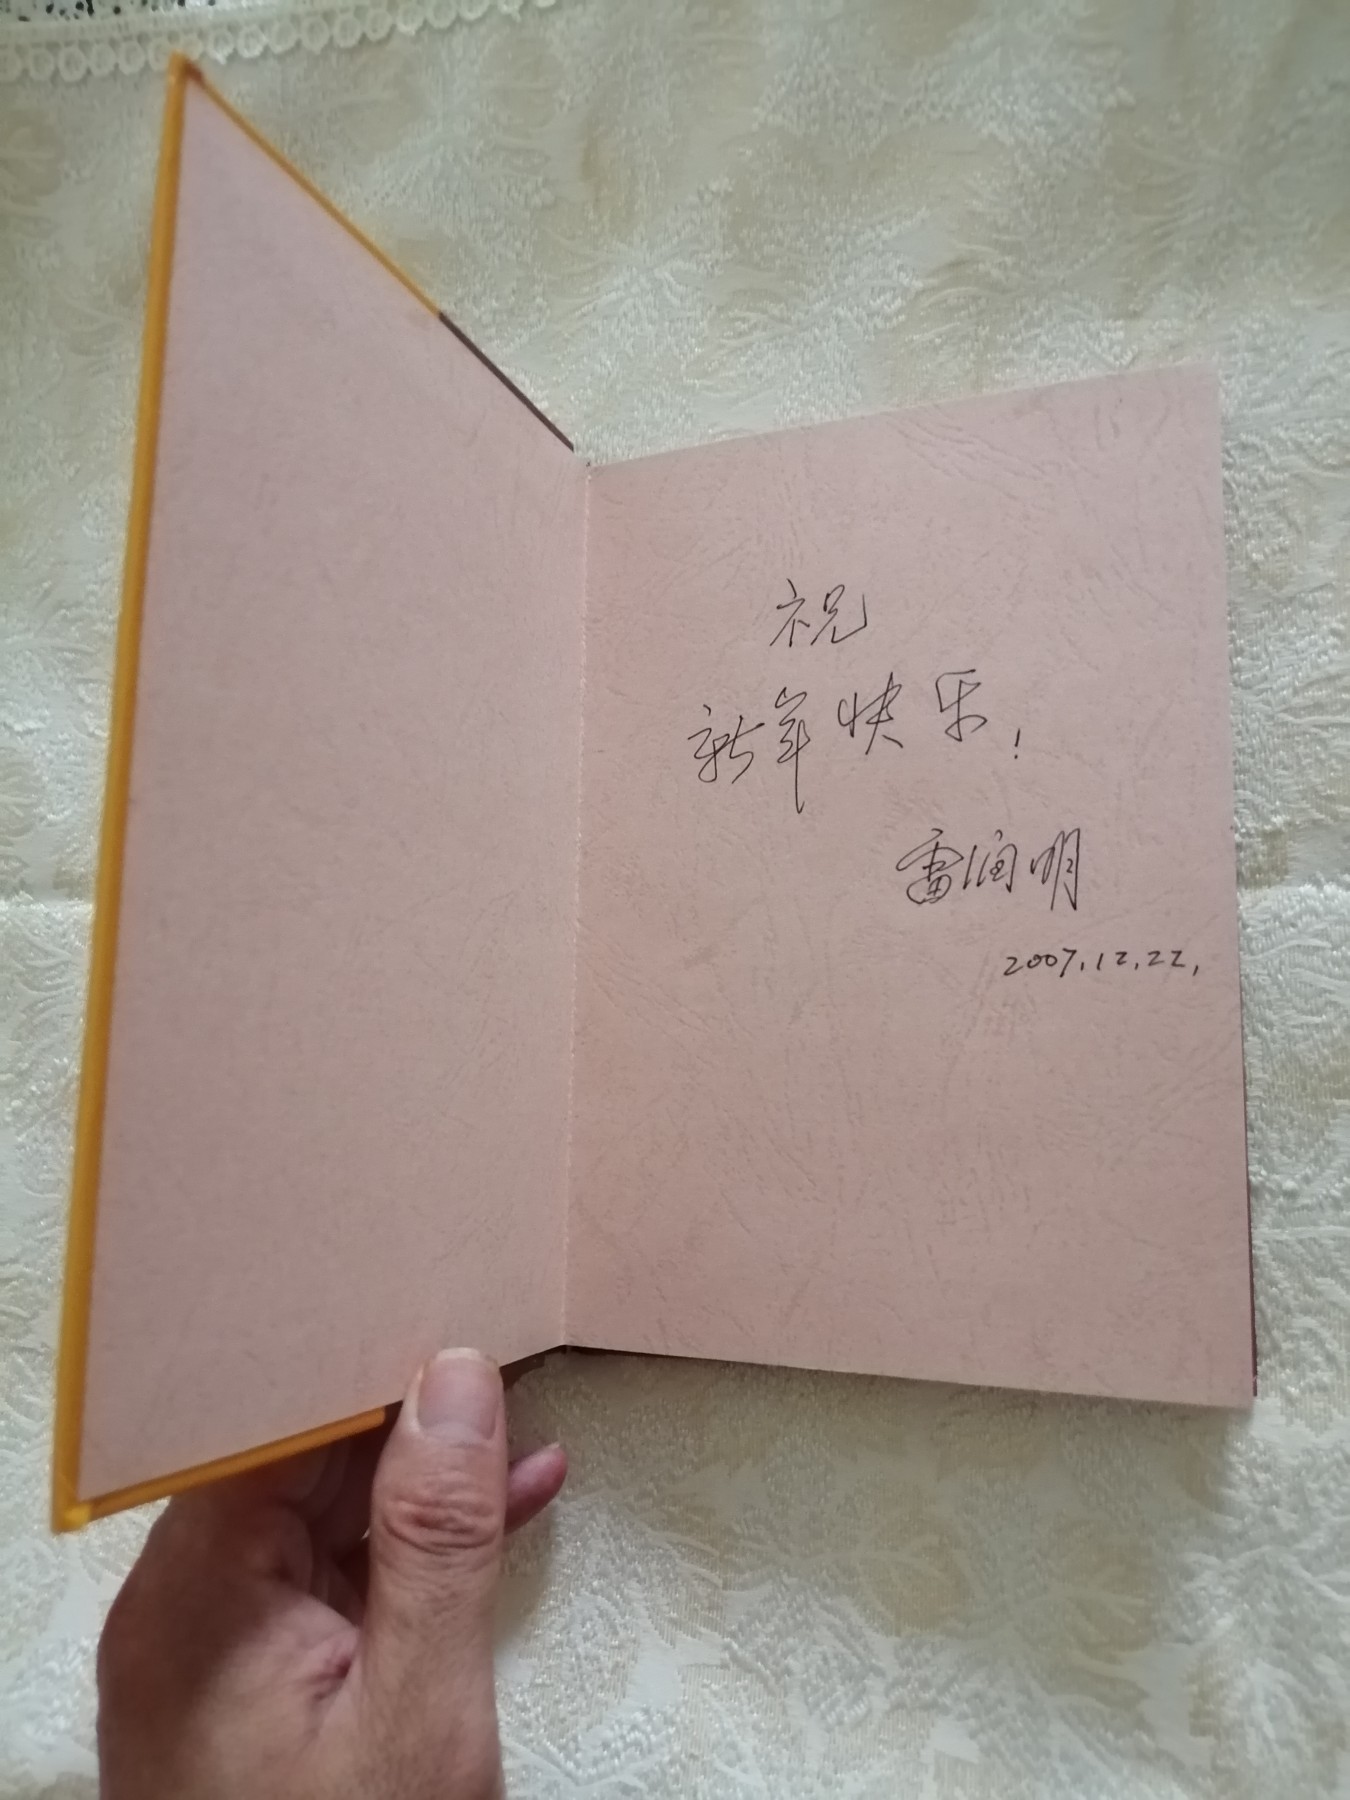 祝
新年快乐!
雷润明
2007.12.22,